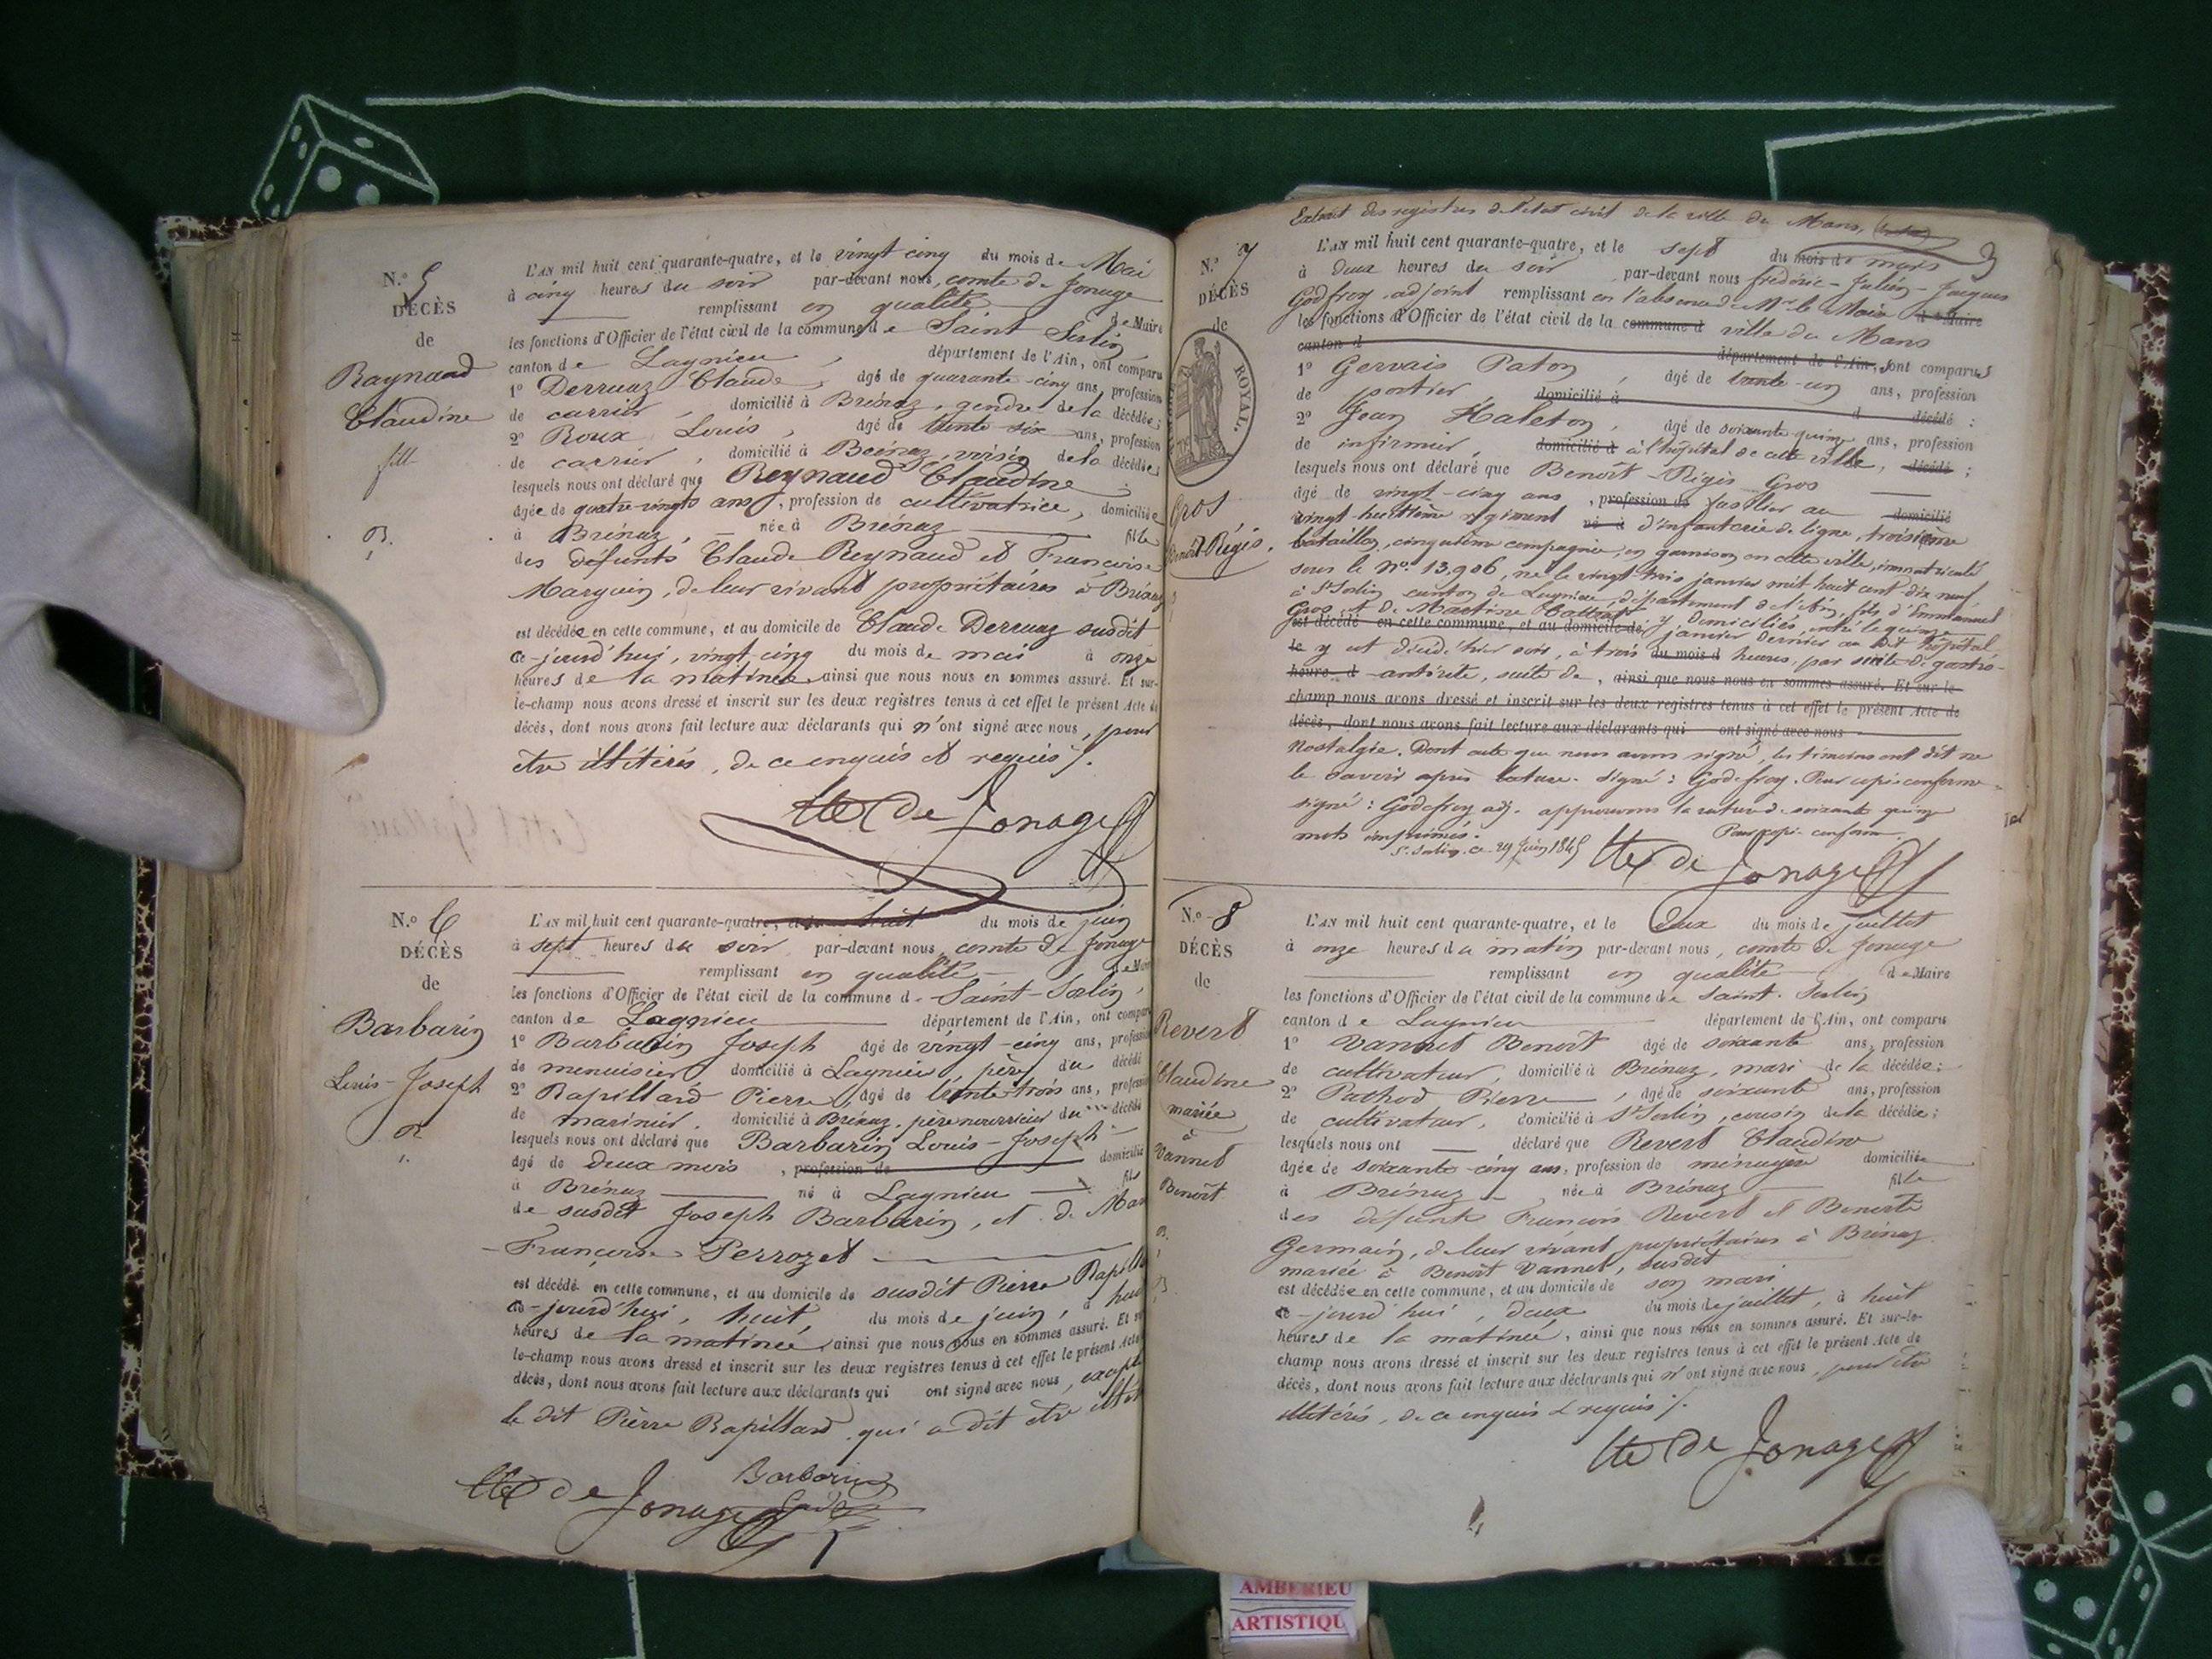 N.º 5
DÉCÈS
de
Raynaud
Claudine
fille
L'AN mil huit cent quarante-quatre, et le vingt cinq du mois de Mai
à cinq heures du soir par-devant nous, comte de Jonage
remplissant en qualité de Maire
les fonctions d'Officier de l'état civil de la commune de Saint Sorlin
canton de Lagnieu, département de l'Ain, ont comparu
1º Derruaz Claude, âgé de quarante-cinq ans, profession
de carrier, domicilié à Brénaz, gendre de la décédée;
2º Roux Louis, âgé de trente six ans, profession
de carrier, domicilié à Brénaz, voisin de la décédée
lesquels nous ont déclaré que Reynaud Claudine
âgée de quatre-vingts ans, profession de cultivatrice, domiciliée
à Brénaz, née à Brénaz fille
des défunts Claude Reynaud et Françoise
Marguin, de leur vivant propriétaires à Brénaz
est décédée en cette commune, et au domicile de Claude Derruaz susdit
ce-jourd'hui, vingt-cinq du mois de mai à onze
heures de la matinée, ainsi que nous nous en sommes assuré. Et sur-
le-champ nous avons dressé et inscrit sur les deux registres tenus à cet effet le présent Acte de
décès, dont nous avons fait lecture aux déclarants qui n'ont signé avec nous, pour
être illitérés, de ce enquis et requis /.
Cte De Jonage
N.º 6
DÉCÈS
de
Barbarin
Louis-Joseph
L'AN mil huit cent quarante-quatre, et le huit du mois de juin
à sept heures du soir par-devant nous, comte de Jonage
remplissant en qualité de Maire
les fonctions d'Officier de l'état civil de la commune de Saint-Sorlin,
canton de Lagnieu département de l'Ain, ont comparu
1º Barbarin Joseph âgé de vingt-cinq ans, profession
de menuisier domicilié à Lagnieu, père du décédé
2º Rapillard Pierre, âgé de trente trois ans, profession
de marinier, domicilié à Brénaz, père nourricier du décédé
lesquels nous ont déclaré que Barbarin Louis-Joseph
âgé de deux mois, profession de domicilié
à Brénaz né à Lagnieu fils
de susdit Joseph Barbarin, et de Mar
Françoise Perrozet
est décédé en cette commune, et au domicile de susdit Pierre Rapill
ce-jourd'hui, huit, du mois de juin, à huit
heures de la matinée, ainsi que nous nous en sommes assuré. Et sur
le-champ nous avons dressé et inscrit sur les deux registres tenus à cet effet le présent Acte
décès, dont nous avons fait lecture aux déclarants qui ont signé avec nous, excepté
le dit Pierre Rapillard qui a dit être illit
Barbarin
Cte De Jonage
Extrait des registres de l'état civil de la ville du Mans,
N.º 7
DÉCÈS
de
ROYAL.
Gros
Benoît-Régis.
L'AN mil huit cent quarante-quatre, et le sept du mois de mars
à deux heures du soir par-devant nous frédéric-Julien-Jacques
Godfroy adjoint remplissant en l'absence de Mr le Maire de Maire
les fonctions d'Officier de l'état civil de la commune d ville du Mans
canton d département de l'Ain, ont comparus
1º Gervais Paton, âgé de trente-un ans, profession
de portier domicilié à d décédé;
2º Jean Haleton, âgé de soixante quinze ans, profession
de infirmier, domicilié à à l'hôpital de cette ville, décédé;
lesquels nous ont déclaré que Benoît-Régis Gros
âgé de vingt-cinq ans, profession de fusilier au domicilié
vingt-huitième régiment né à d'infanterie de ligne, troisième
bataillon, cinquième compagnie, en garnison en cette ville, immatriculé
sous le Nº. 13,906, né le vingt-trois janvier mil huit cent dix neuf
à St Sorlin canton de Lagnieu, département de l'Ain, fils d'Emmanuel
Gros et de Martine domiciliés, entré le quinze
est décédé en cette commune, et au domicile de janvier dernier au dit hôpital
le y est décédé hier soir, à trois du mois d heures, par suite de gastro-
heure d -entérite, suite de, ainsi que nous nous en sommes assuré. Et sur-le-
champ nous avons dressé et inscrit sur les deux registres tenus à cet effet le présent Acte de
décès, dont nous avons fait lecture aux déclarants qui ont signé avec nous
Nostalgie. Dont acte que nous avons signé, les témoins ont dit ne
le savoir après lecture. signé: Godefroy. Pour copie conforme
signé: Godefroy adj. approuvons la rature de soixante quinze
mots imprimés. Pour copie conforme
St. Sorlin ce 29 Juin 1845 Cte De Jonage
N.º 8
DÉCÈS
de
Revert
Claudine
mariée
à
Vannet
Benoît
L'AN mil huit cent quarante-quatre, et le deux du mois de juillet
à onze heures du matin par-devant nous, comte de Jonage
remplissant en qualité de Maire
les fonctions d'Officier de l'état civil de la commune de Saint-Sorlin
canton de Lagnieu département de l'Ain, ont comparu
1º Vannet Benoît âgé de soixante ans, profession
de cultivateur, domicilié à Brénaz, mari de la décédée:
2º Pathod Pierre, âgé de soixante ans, profession
de cultivateur, domicilié à St Sorlin, cousin de la décédée;
lesquels nous ont déclaré que Revert Claudine
âgée de soixante-cinq ans, profession de ménagère domiciliée
à Brénaz, née à Brénaz fille
des défunts François Revert et Benoîte
Germain, de leur vivant propriétaires à Brénaz
mariée à Benoît Vannet, susdit
est décédée en cette commune, et au domicile de son mari
ce-jourd'hui, deux du mois de juillet, à huit
heures de la matinée, ainsi que nous nous en sommes assuré. Et sur-le-
champ nous avons dressé et inscrit sur les deux registres tenus à cet effet le présent Acte de
décès, dont nous avons fait lecture aux déclarants qui n'ont signé avec nous, pour être
illitérés, de ce enquis & requis /.
Cte De Jonage
AMBERIEU
ARTISTIQU